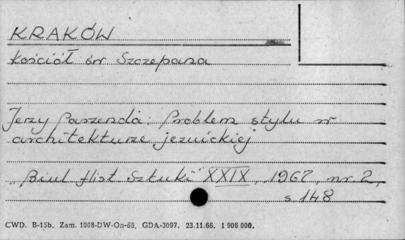 KRAKÓW
Kościół św Szczepana
Jerzy Paszenda: Problem stylu w
architekturze jezuickiej
„Biul Hist Sztuki" XXIX, 1967, nr. 2,
s 148
CWD. B-15b. Zam. 1008-DW-Oz-66, GDA-3097. 23.11.66. 1 000 000,